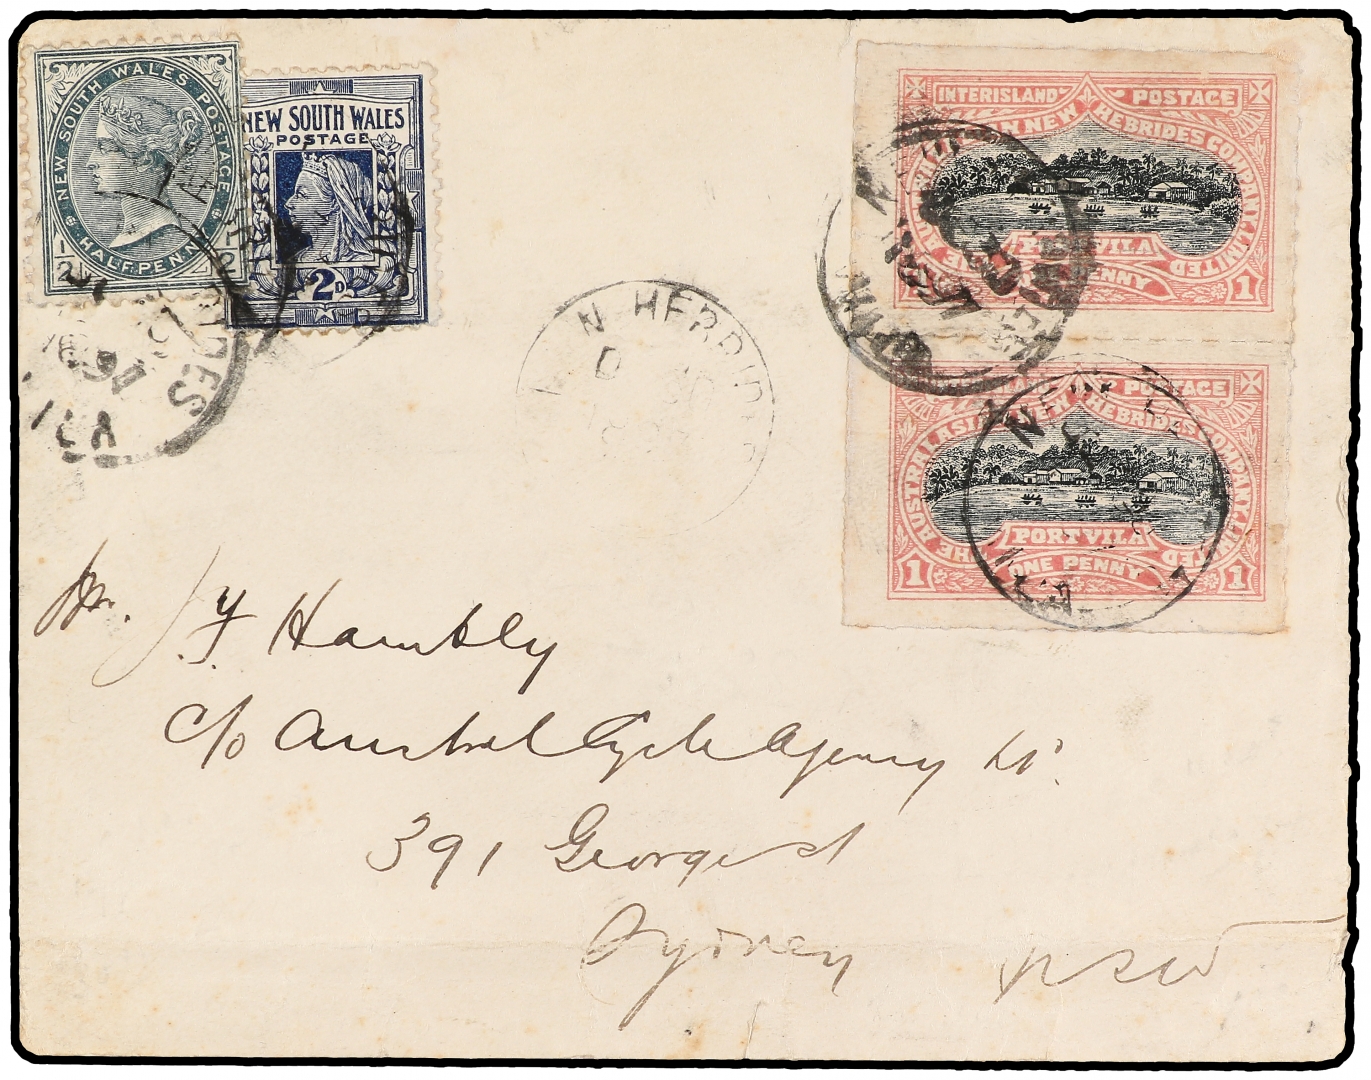 NEW SOUTH WALES POSTAGE
1/2
1/2
HALFPENNY
NEW SOUTH WALES
POSTAGE
2D
INTERISLAND POSTAGE
NEW HEBRIDES COMPANY, LIMITED
PORT VILA
PENNY
1
POSTAGE
THE AUSTRALASIAN NEW HEBRIDES COMPANY, LIMITED
PORT VILA
ONE PENNY
1
1
N HEBRIDES
NEW HE
Mr. J. Y Hambly
c/o Austral Cycle Agency Ld.
391 George st
Sydney NSW